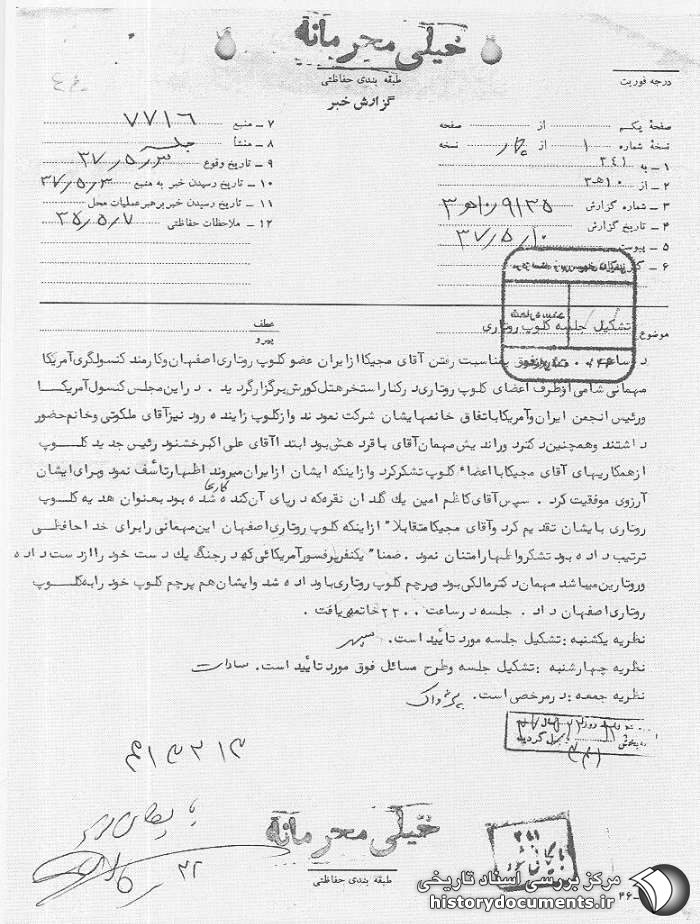 خیلی محرمانه
طبقه بندی حفاظتی
گزارش خبر
درجه فوریت
صفحه یکم از صفحه
نسخه شماره ۱ از چهار نسخه
۱ ـ به ۳۴۱
۲ ـ از ۱۰هـ۳
۳ ـ شماره گزارش ۳هـ۱۰/۹۱۳۵
۴ ـ تاریخ گزارش ۳۷/۵/۱۰
۵ ـ پیوست
۶ ـ
۷ ـ منبع ۷۷۱۶
۸ ـ منشأ جلسه
۹ ـ تاریخ وقوع ۳۷/۵/۳
۱۰ ـ تاریخ رسیدن خبر به منبع ۳۷/۵/۳
۱۱ ـ تاریخ رسیدن خبر برهبر عملیات محل
۱۲ ـ ملاحظات حفاظتی ۳۵/۵/۷
موضوع تشکیل جلسه کلوپ روتاری
عطف
پیرو
در ساعت فوق بمناسبت رفتن آقای مجیکا از ایران عضو کلوپ روتاری اصفهان و کارمند کنسولگری آمریکا
مهمانی شامی از طرف اعضای کلوپ روتاری در کنار استخر هتل کورش برگزار گردید . در این مجلس کنسول آمریکا
و رئیس انجمن ایران و آمریکا باتفاق خانمهایشان شرکت نمودند و از کلوپ زاینده رود نیز آقای ملکوتی و خانم حضور
داشتند و همچنین دکتر مهمان آقای بود ابتدا آقای علی اکبر خشنود رئیس جدید کلوپ
از همکاریهای آقای مجیکا با اعضاء کلوپ تشکر کرد و از اینکه ایشان از ایران میروند اظهار تأسف نمود و برای ایشان
آرزوی موفقیت کرد . سپس آقای کاظم امین یك گلدان نقره که در پای آن کنده کاری شده بود بعنوان هدیه کلوپ
روتاری بایشان تقدیم کرد و آقای مجیکا متقابلا" از اینکه کلوپ روتاری اصفهان این مهمانی را برای خداحافظی
ترتیب داده بود تشکر و اظهار امتنان نمود . ضمنا" یکنفر پرفسور آمریکائی که در جنگ یك دست خود را از دست داده
و روتارین میباشد مهمان دکتر مالکی بود و پرچم کلوپ روتاری باو داده شد و ایشان هم پرچم کلوپ خود را به کلوپ
روتاری اصفهان داد . جلسه در ساعت ۲۲۰۰ خاتمه یافت .
نظریه یکشنبه : تشکیل جلسه مورد تأیید است . سپهر
نظریه چهارشنبه : تشکیل جلسه و طرح مسائل فوق مورد تأیید است . سادات
نظریه جمعه : در مرخصی است .
خیلی محرمانه
طبقه بندی حفاظتی
مرکز بررسی اسناد تاریخی
historydocuments.ir